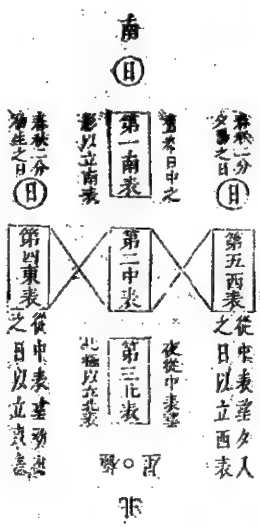 南
日
春秋二分
夕
之日
日
日中之
第一南表
影以立南表
春秋二分
之日
日
第五西表
第二中表
第四東表
從中表望夕入
之日以立西表
夜從中表望
第三北表
北極以立北表
從中表望初出
之日以立東表
北